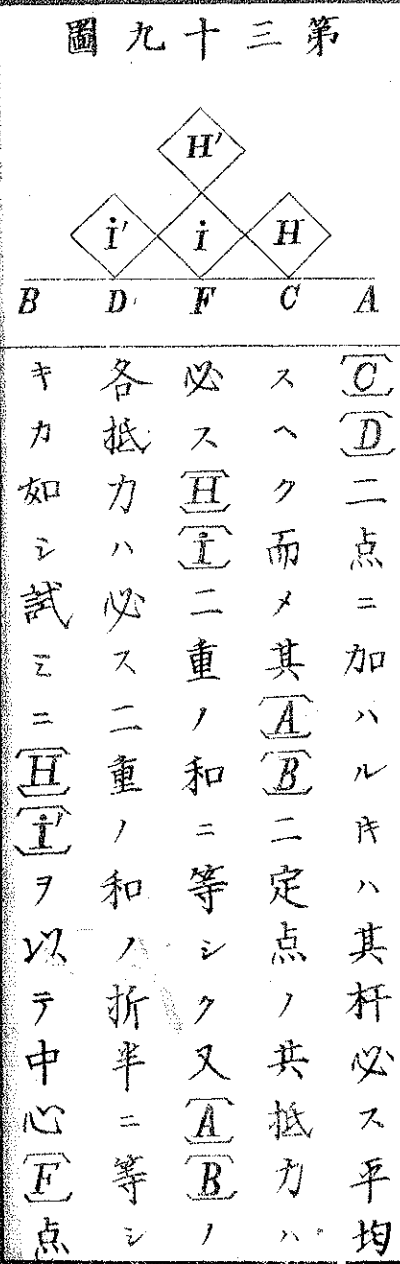 第三十九圖
H′
i′ i H
B D F C A
〔C〕〔D〕二点ニ加ハルキハ其杆必ス平均
スヘク而メ其〔A〕〔B〕二定点ノ共抵力ハ
必ス〔H〕〔i〕二重ノ和ニ等シク又〔A〕〔B〕ノ
各抵力ハ必ス二重ノ和ノ折半ニ等シ
キカ如シ試ミニ〔H〕〔i′〕ヲ以テ中心〔F〕点